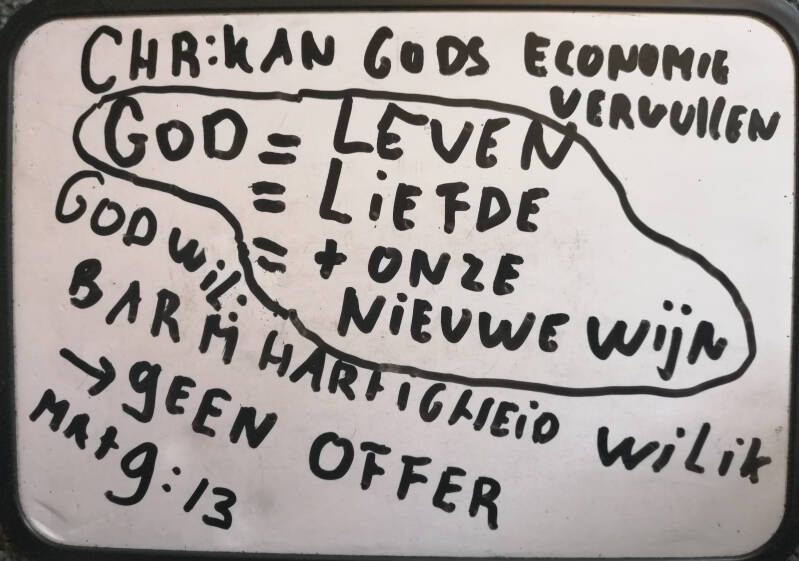 CHR: KAN GODS ECONOMIE
VERVULLEN
GOD = LEVEN
= LiEFDE
= + ONZE
NiEUWE WijN
GOD WiL:
BARMHARTIGHEiD WiL ik
→ GEEN OFFER
MAT 9:13